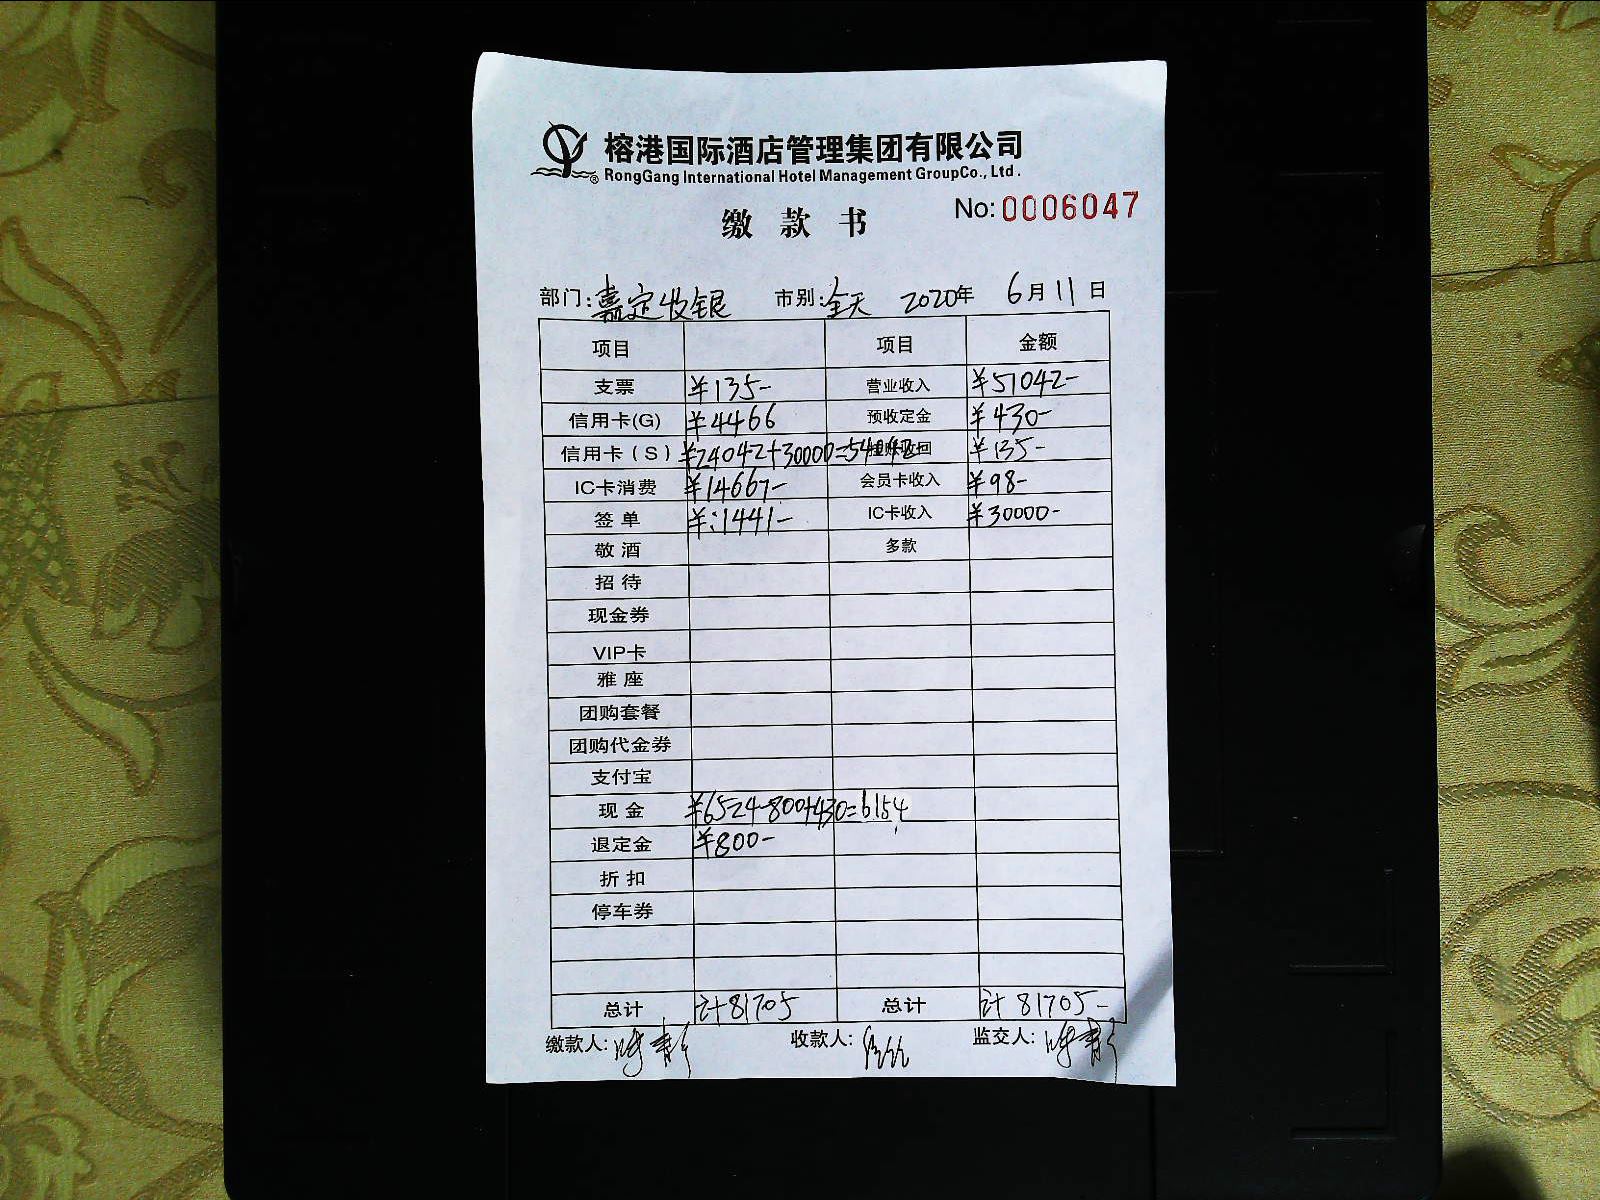 榕港国际酒店管理集团有限公司
RongGang International Hotel Management GroupCo., Ltd.
缴款书 No:0006047
部门:嘉定收银 市别:全天 2020年 6月11日
项目 项目 金额
支票 ¥135- 营业收入 ¥51042-
信用卡(G) ¥4466 预收定金 ¥430-
信用卡(S) ¥24042+30000=54042- 挂账收回 ¥135-
IC卡消费 ¥14667- 会员卡收入 ¥98-
签单 ¥:1441- IC卡收入 ¥30000-
敬酒 多款
招待
现金券
VIP卡
雅座
团购套餐
团购代金券
支付宝
现金 ¥6524-800+430=6154
退定金 ¥800-
折扣
停车券
总计 计81705 总计 计81705-
缴款人: 收款人: 监交人: